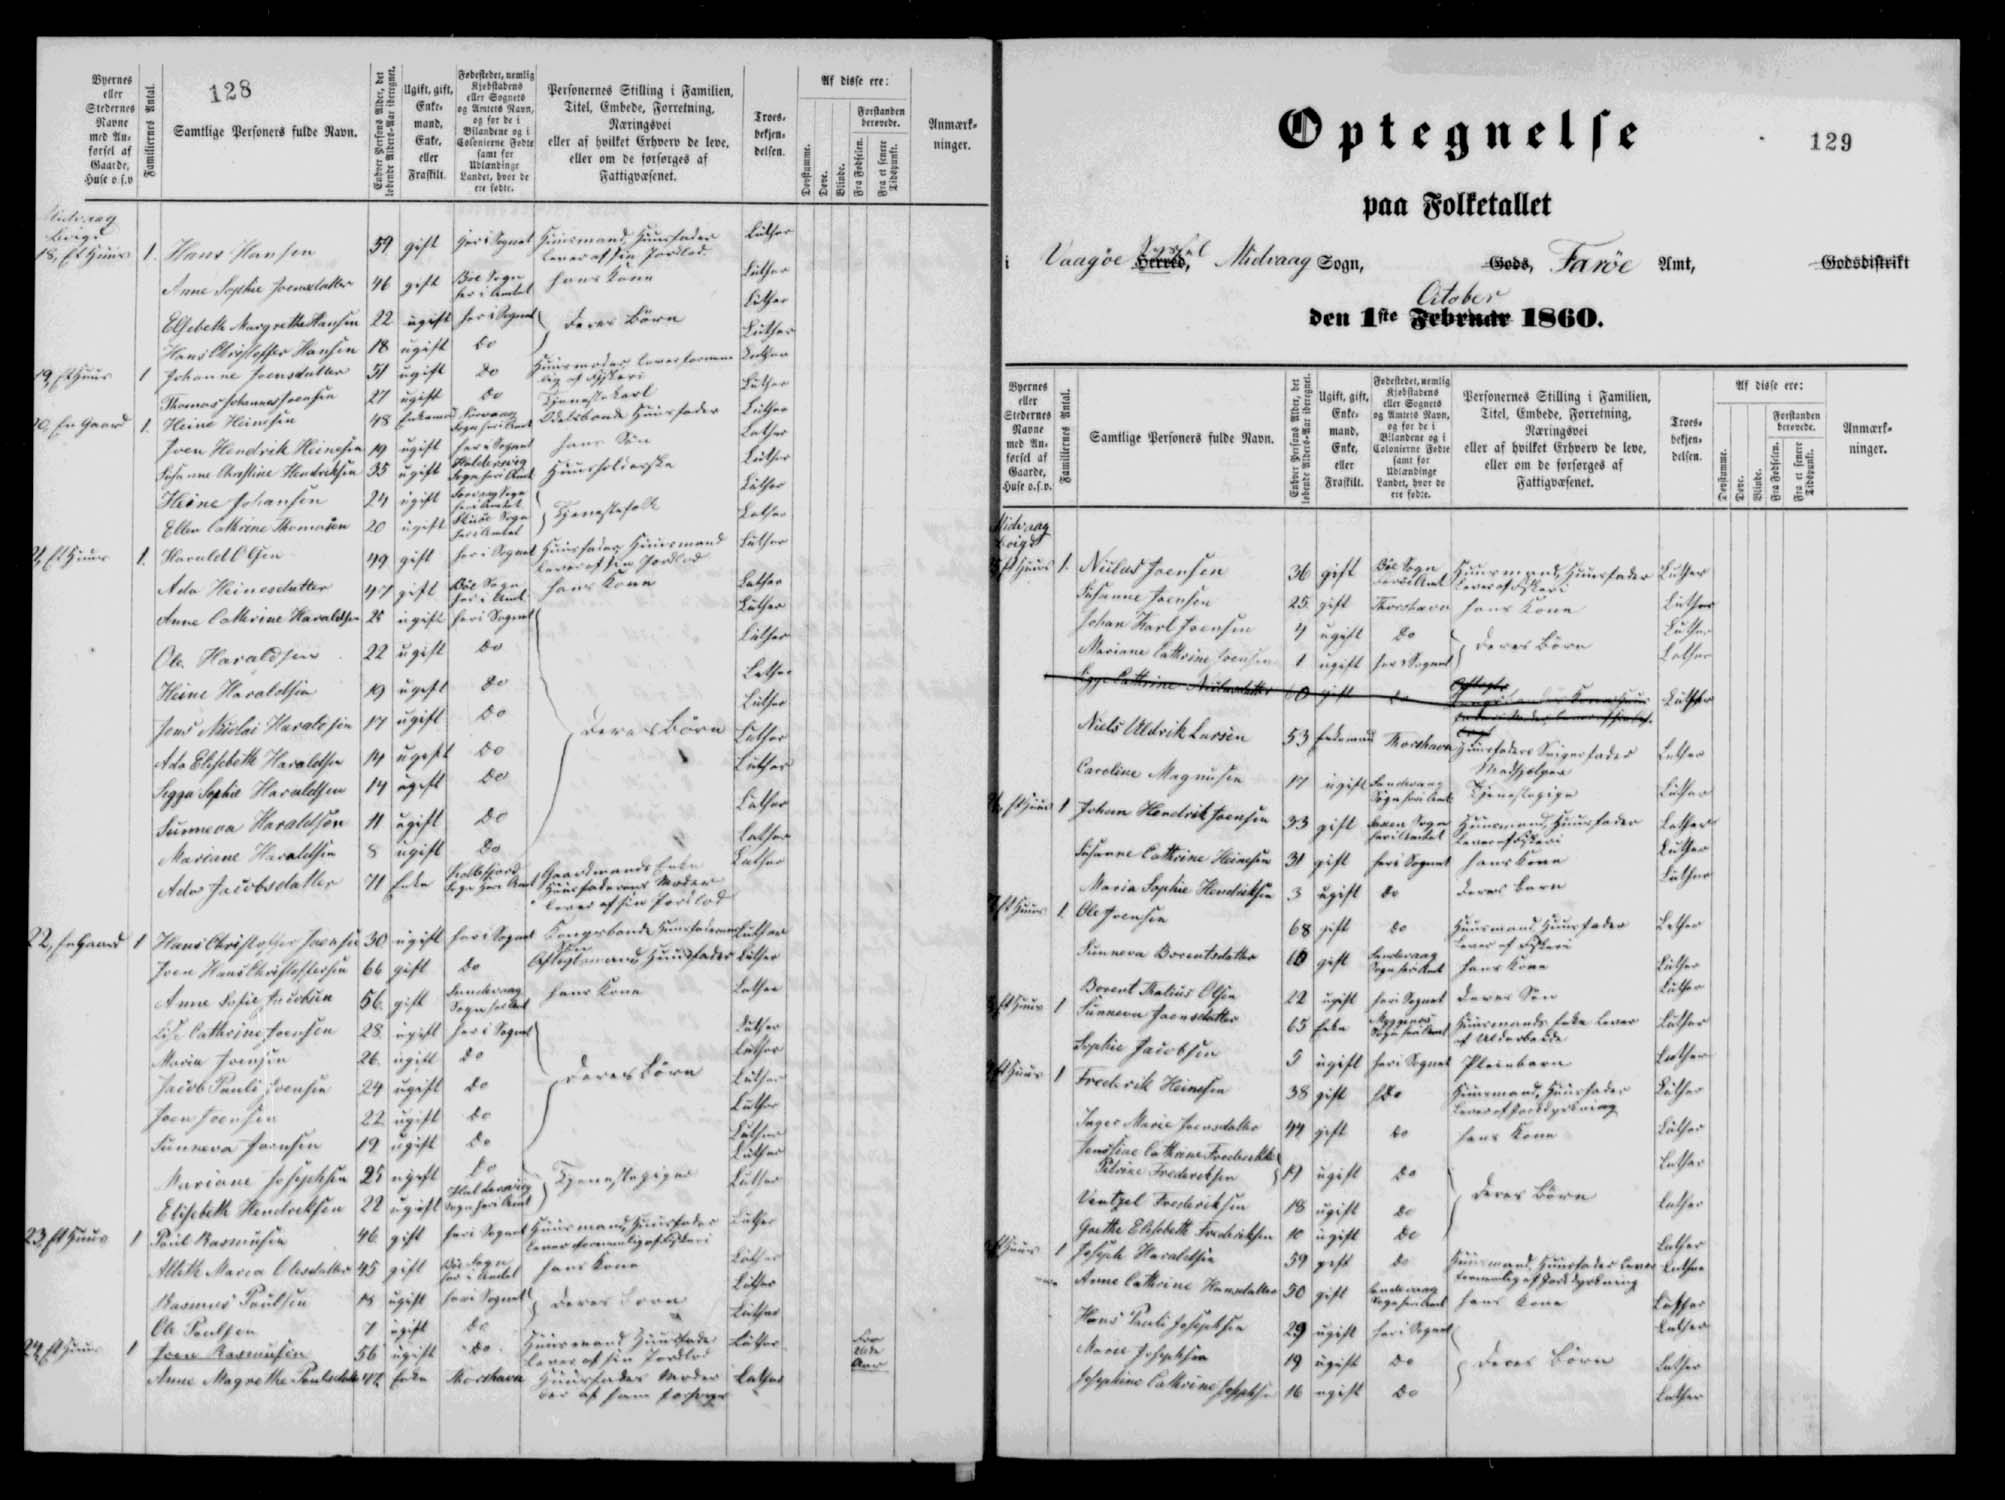 128
Byernes eller Stedernes Navne med Anførsel af Gaarde, Huse o.s.v
Familiernes Antal.
Samtlige Personers fulde Navn.
Enhver Persons Alder, det løbende Alders-Aar iberegnet.
Ugift, gift, Enkemand, Enke, eller Fraskilt.
Fødestedet, nemlig Kjøbstadens eller Sognets og Amtets Navn, og for de i Bilandene og i Colonierne Fødte samt for Udlændinge Landet, hvor de ere fødte.
Personernes Stilling i Familien, Titel, Embede, Forretning, Næringsvei eller af hvilket Erhverv de leve, eller om de forsørges af Fattigvæsenet.
Troesbekjendelsen.
Af disse ere:
Døvstumme.
Døve.
Blinde.
Forstanden berøvede.
Fra Fødselen.
Fra et senere Tidspunkt.
Anmærkninger.
Midvaag Bøigd
18, Et Huus 1. Hans Hansen 59 gift her i Sognet Huusmand, Huusfader lever af sin Jordlod Luther
Anne Sophie Joensdatter 46 gift Bøe Sogn her i Amtet hans Kone Luther
Elsebeth Margrethe Hansen 22 ugift her i Sognet deres Børn Luther
Hans Christoffer Hansen 18 ugift do Luther
19, Et Huus 1 Johanne Joensdatter 51 ugift do Huusmoder lever af Fiskeri Luther
Thomas Johannes Joensen 27 ugift do Tjenestekarl Luther
20, En Gaard 1. Heine Heinesen 48 Enkemand Sørvaag Sogn her i Amt Odelsbonde Huusfader Luther
Joen Hendrik Heinesen 19 ugift her i Sognet hans Søn Luther
Susanne Christine Hendriksen 35 ugift Halderwig Sogn her i Amt Huusholderske Luther
Heine Johansen 24 ugift Sørvaag Sogn her i Amtet Tjenestefolk Luther
Ellen Cathrine Thomasen 20 ugift Skuøe Sogn her i Amtet Luther
21, Et Huus 1. Harald Olsen 49 gift her i Sognet Huusfader Huusmand lever af sin Jordlod Luther
Ada Heinesdatter 47 gift Bøe Sogn her i Amt hans Kone Luther
Anne Cathrine Haraldsen 25 ugift her i Sognet Luther
Ole Haraldsen 22 ugift do Luther
Heine Haraldsen 19 ugift do Luther
Jens Nicolai Haraldsen 17 ugift do deres Børn Luther
Ada Elisebeth Haraldsen 14 ugift do Luther
Sigga Sophie Haraldsen 14 ugift do Luther
Sunneva Haraldsen 11 ugift do Luther
Mariane Haraldsen 8 ugift do Luther
Ada Jacobsdatter 71 Enke Kollefjord Sogn her i Amt Gaardmands Enke Huusfaderens Moder lever af sin Jordlod Luther
22, En Gaard 1 Hans Christopher Joensen 30 ugift her i Sognet Kongsbonde Huusfaderens Søn Luther
Joen Hans Christoffersen 66 gift do Aftægtsmand Huusfader Luther
Anne Sofie Jacobsen 56 gift Sandevaag Sogn her i Amt hans Kone Luther
Lise Cathrine Joensen 28 ugift her i Sognet Luther
Maria Joensen 26 ugift do Luther
Jacob Pauli Joensen 24 ugift do deres Børn Luther
Joen Joensen 22 ugift do Luther
Sunneva Joensen 19 ugift do Luther
Mariane Josephsen 25 ugift do Tjenestepiger Luther
Elisebeth Hendriksen 22 ugift Halderwig Sogn her i Amt Luther
23, Et Huus 1 Poul Rasmusen 46 gift her i Sognet Huusmand, Huusfader lever fornemmelig af Fiskeri Luther
Maria Olesdatter 45 gift Bøe Sogn her i Amtet hans Kone Luther
Rasmus Poulsen 18 ugift her i Sognet deres Børn Luther
Ole Poulsen 7 ugift do Luther
24, Et Huus 1 Joen Rasmusen 56 ugift do Huusmand Huusfader lever af sin Jordlod Luther Fra Aar
Anne Magrethe Poulsdatter Enke Thorshavn Huusfaders Moder af ham forsørges Luther
Optegnelse
129
paa Folketallet
i Vaagøe Syssel Herred, Midvaag Sogn, Gods, Farøe Amt, Godsdistrikt
October
den 1ste Februar 1860.
Byernes eller Stedernes Navne med Anførsel af Gaarde, Huse o.s.v.
Familiernes Antal.
Samtlige Personers fulde Navn.
Enhver Persons Alder, det løbende Alders-Aar iberegnet.
Ugift, gift, Enkemand, Enke, eller Fraskilt.
Fødestedet, nemlig Kjøbstadens eller Sognets og Amtets Navn, og for de i Bilandene og i Colonierne Fødte samt for Udlændinge Landet, hvor de ere fødte.
Personernes Stilling i Familien, Titel, Embede, Forretning, Næringsvei eller af hvilket Erhverv de leve, eller om de forsørges af Fattigvæsenet.
Troesbekjendelsen.
Af disse ere:
Døvstumme.
Døve.
Blinde.
Forstanden berøvede.
Fra Fødselen.
Fra et senere Tidspunkt.
Anmærkninger.
Midvaag Bøigd
Et Huus 1. Niclas Joensen 36 gift Bøe Sogn her i Amt Huusmand, Huusfader lever af Fiskeri Luther
Susanne Joensen 25 gift Thorshavn hans Kone Luther
Johan Karl Joensen 4 ugift do deres Børn Luther
Mariane Cathrine Joensen 1 ugift her i Sognet Luther
Cathrine Niclasdatter 60 gift do Luther
Niels Uldrik Larsen 53 Enkemand Thorshavn Huusfaders Svigerfader Luther
Caroline Magnusen 17 ugift Sandevaag Sogn her i Amt Tjenestepige Luther
Et Huus 1 Johan Hendrik Joensen 33 gift Sogn her i Amtet Huusmand, Huusfader lever af Fiskeri Luther
Susanne Cathrine Heinesen 31 gift her i Sognet hans Kone Luther
Maria Sophie Hendriksen 3 ugift do deres Barn Luther
Et Huus 1. Ole Joensen 68 gift do Huusmand, Huusfader lever af Fiskeri Luther
Sunneva Borentsdatter gift Sandevaag Sogn her i Amt hans Kone Luther
Borent Thalius Olsen 22 ugift her i Sognet deres Søn Luther
Et Huus 1 Sunneva Joensdatter 65 Enke Myggenæs Sogn her i Amt Huusmands Enke lever af Uldarbeide Luther
Sophie Jacobsen 5 ugift her i Sognet Pleiebarn Luther
Et Huus 1 Frederik Heinesen 38 gift do Huusmand, Huusfader lever af Jorddyrkning Luther
Inger Marie Joensdatter 44 gift do hans Kone Luther
Jensine Cathrine Frederikke Petrine Frederiksen 19 ugift do Luther
Ventzel Frederiksen 18 ugift do deres Børn Luther
Grethe Elisebeth Frederiksen 10 ugift do Luther
Et Huus 1 Joseph Haraldsen 59 gift do Huusmand, Huusfader lever fornemmelig af Jorddyrkning Luther
Anne Cathrine Hansdatter 50 gift Sandevaag Sogn her i Amt hans Kone Luther
Hans Pauli Josephsen 29 ugift her i Sognet Luther
Marie Josephsen 19 ugift do deres Børn Luther
Josephine Cathrine Josephsen 16 ugift do Luther